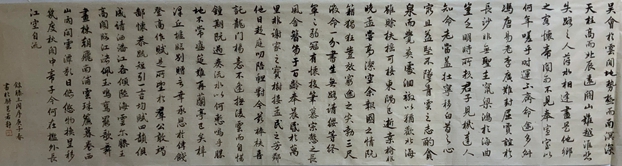 吴會於雲間地勢極而南溟深
天柱高而北辰遠關山難越誰悲
失路之人萍水相逢盡是他鄉
之客懷帝閽而不見奉宣室以
何年嗟乎時運不齊命途多舛
馮唐易老李廣難封屈賈誼於
長沙非無聖主竄梁鴻於海曲
豈乏明時所賴君子見機達人
知命老當益壯寧移白首之心
窮且益堅不墜青雲之志酌貪
泉而覺爽處涸轍以猶歡北海
雖賒扶搖可接東隅已逝桑榆非
晚孟嘗高潔空餘報國之情阮
籍猖狂豈效窮途之哭勃三尺
微命一介書生無路請纓等終軍
之弱冠有懷投筆慕宗愨之長
風舍簪笏於百齡奉晨昏於萬
里非謝家之寶樹接孟氏之芳鄰
他日趨庭叨陪鯉對今茲捧袂喜
託龍門楊意不逢撫凌雲而自
惜鍾期既遇奏流水以何慚嗚乎勝
地不常盛筵難再蘭亭已矣梓
澤丘墟臨別贈言幸承恩於偉餞
登高作賦是所望於群公敢竭
鄙懷恭疏短引一言均賦四韻俱
成請灑潘江各傾陸海雲爾滕王
高閣臨江渚佩玉鳴鸞罷歌舞
畫棟朝飛南浦雲珠簾暮卷西
山雨閒雲潭影日悠悠物換星移
幾度秋閣中帝子今何在檻外長
江空自流